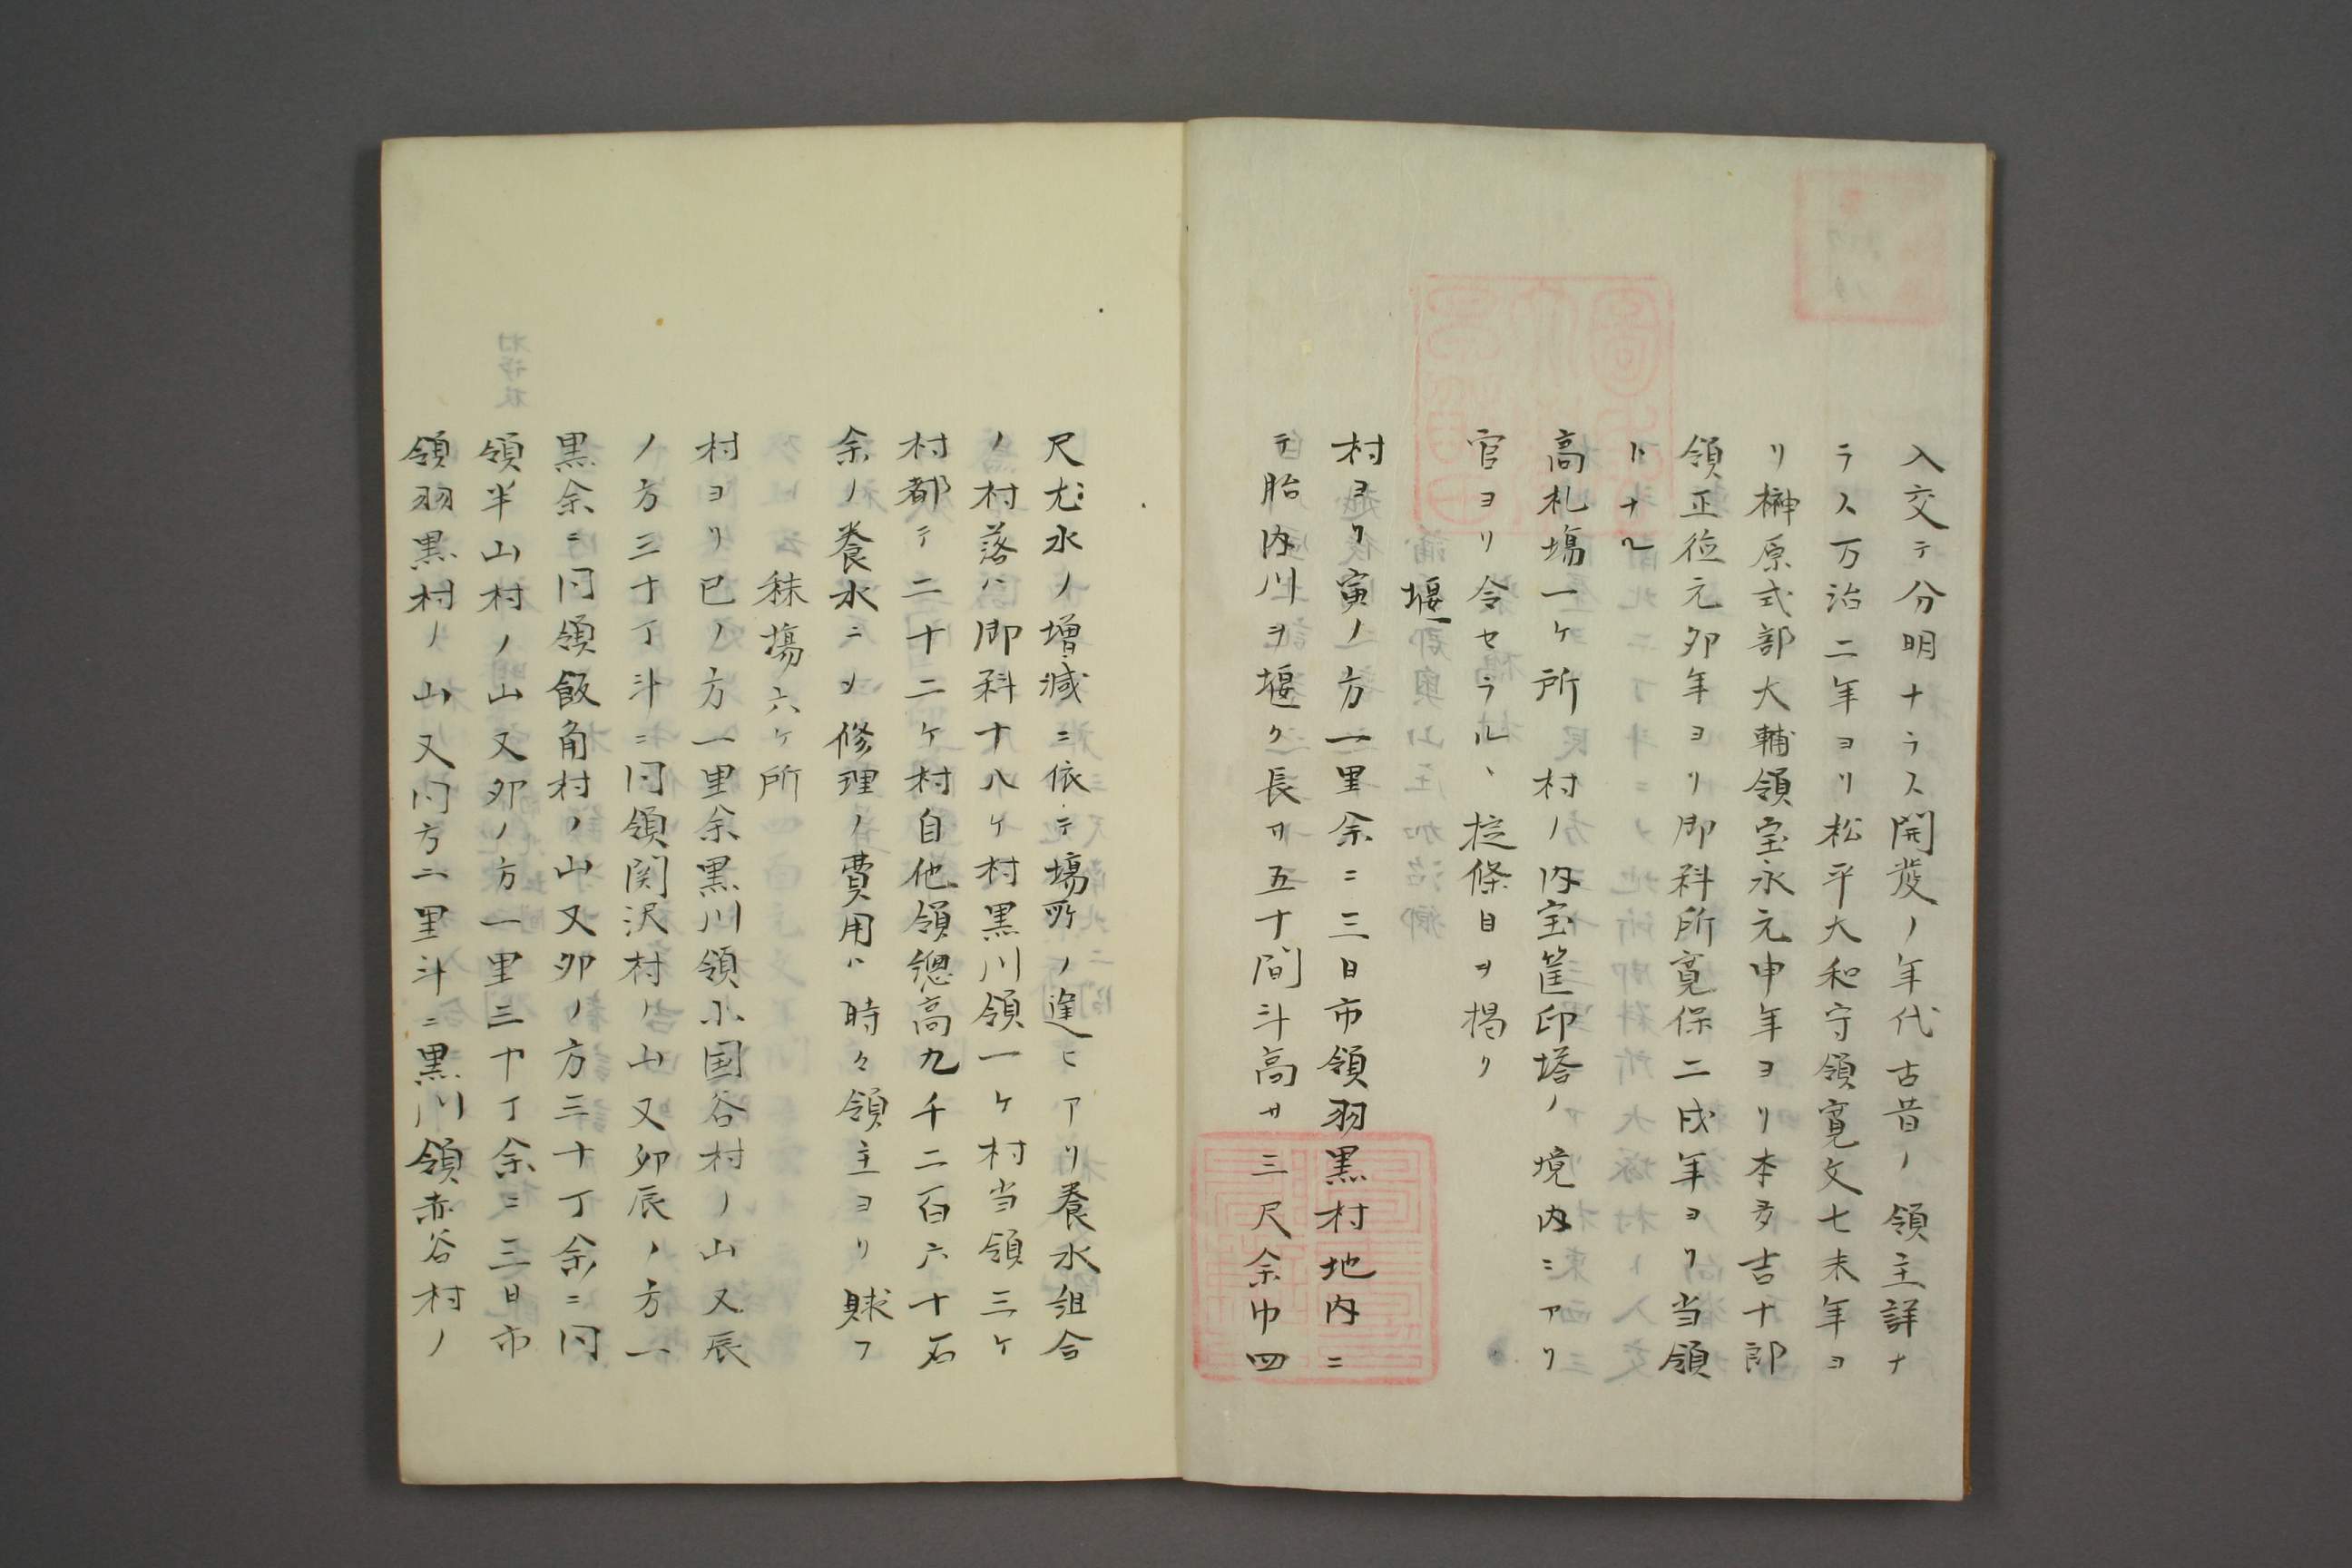 入交テ分明ナラス開発ノ年代古昔ノ領主詳ナ
ラス万治二年ヨリ松平大和守領寛文七未年ヨ
リ榊原式部大輔領宝永元申年ヨリ本多吉十郎
領正徳元卯年ヨリ御料所寛保二戌年ヨリ当領
トナル
高札場一ケ所 村ノ内宝筐印塔ノ境内ニアリ
官ヨリ令セラルヽ掟條目ヲ掲リ
堰
村ヨリ寅ノ方一里余ニ三日市領羽黒村地内ニ
テ胎内川ヲ堰ク長サ五十間斗高サ三尺余巾四
尺尤水ノ増減ニ依テ場所ノ違ヒアリ養水組合
ノ村落ハ御料十八ケ村黒川領一ケ村当領三ケ
村都テ二十二ケ村自他領総高九千二百六十石
余ノ養水ニメ修理ノ費用ハ時々領主ヨリ賕フ
秣場六ケ所
村ヨリ巳ノ方一里余黒川領小国谷村ノ山又辰
ノ方三十丁斗ニ同領関沢村ノ山又卯辰ノ方一
黒余ニ同領飯角村ノ山又卯ノ方三十丁余ニ同
領半山村ノ山又卯ノ方一里三十丁余ニ三日市
領羽黒村ノ山又同方二里斗ニ黒川領赤谷村ノ